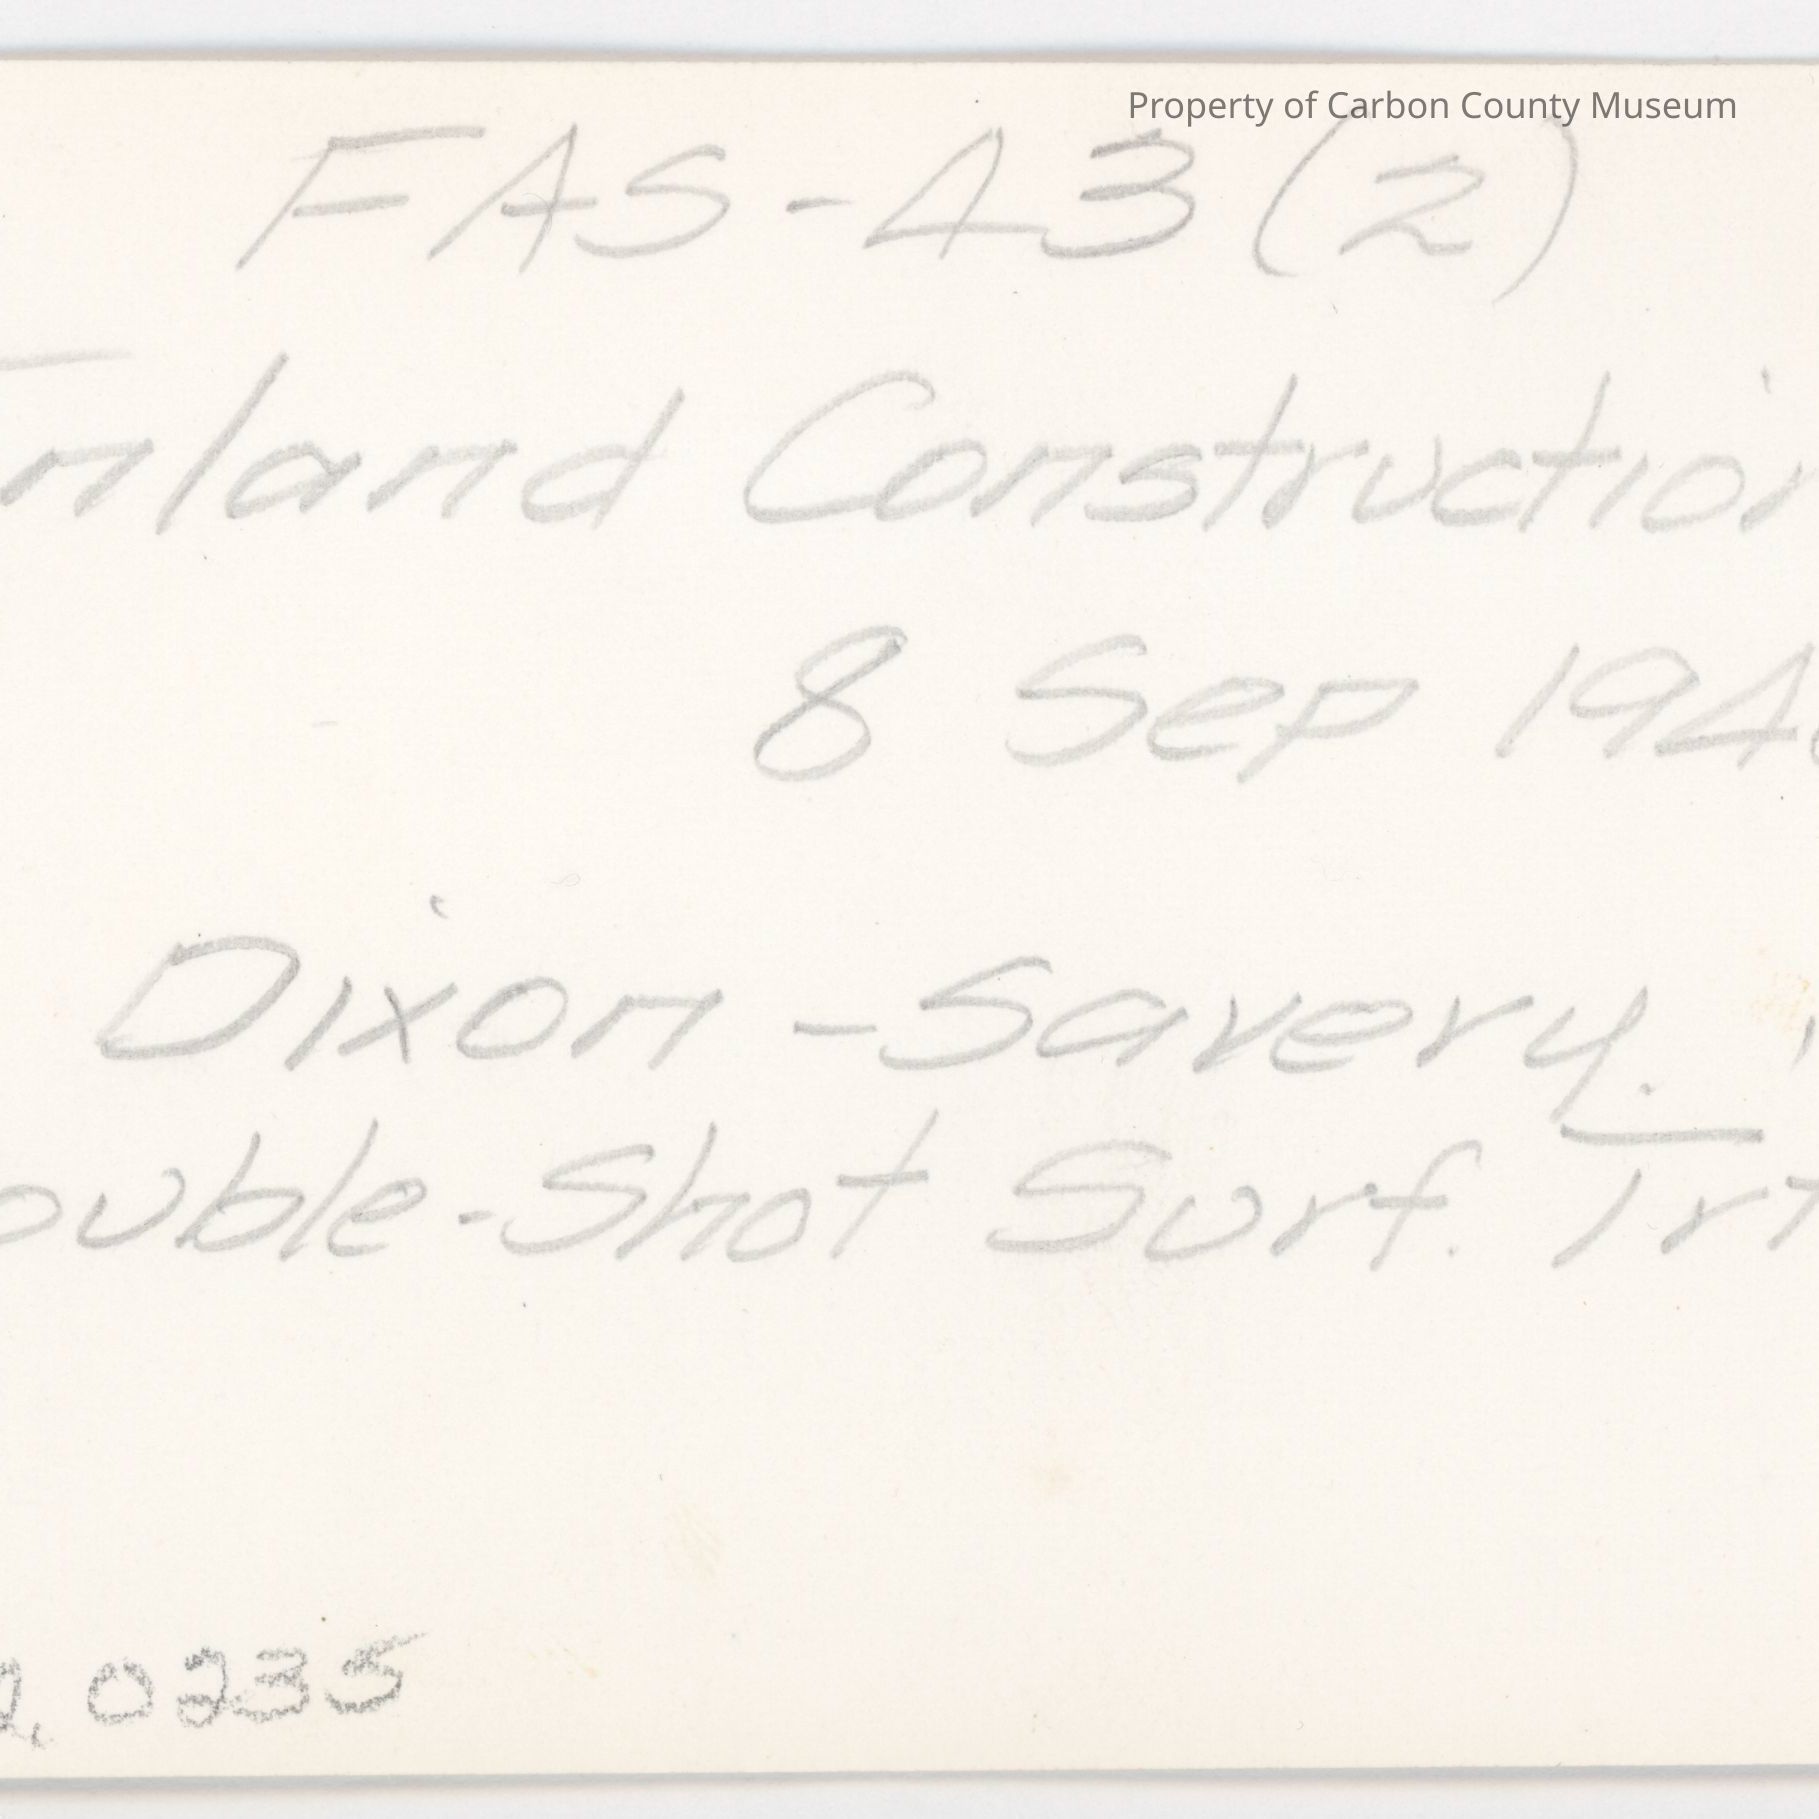 Property of Carbon County Museum
FAS-43(2)
Inland Construction
8 Sep 194
Dixon - Savery.
ouble-Shot Surf. Trt
2.0235